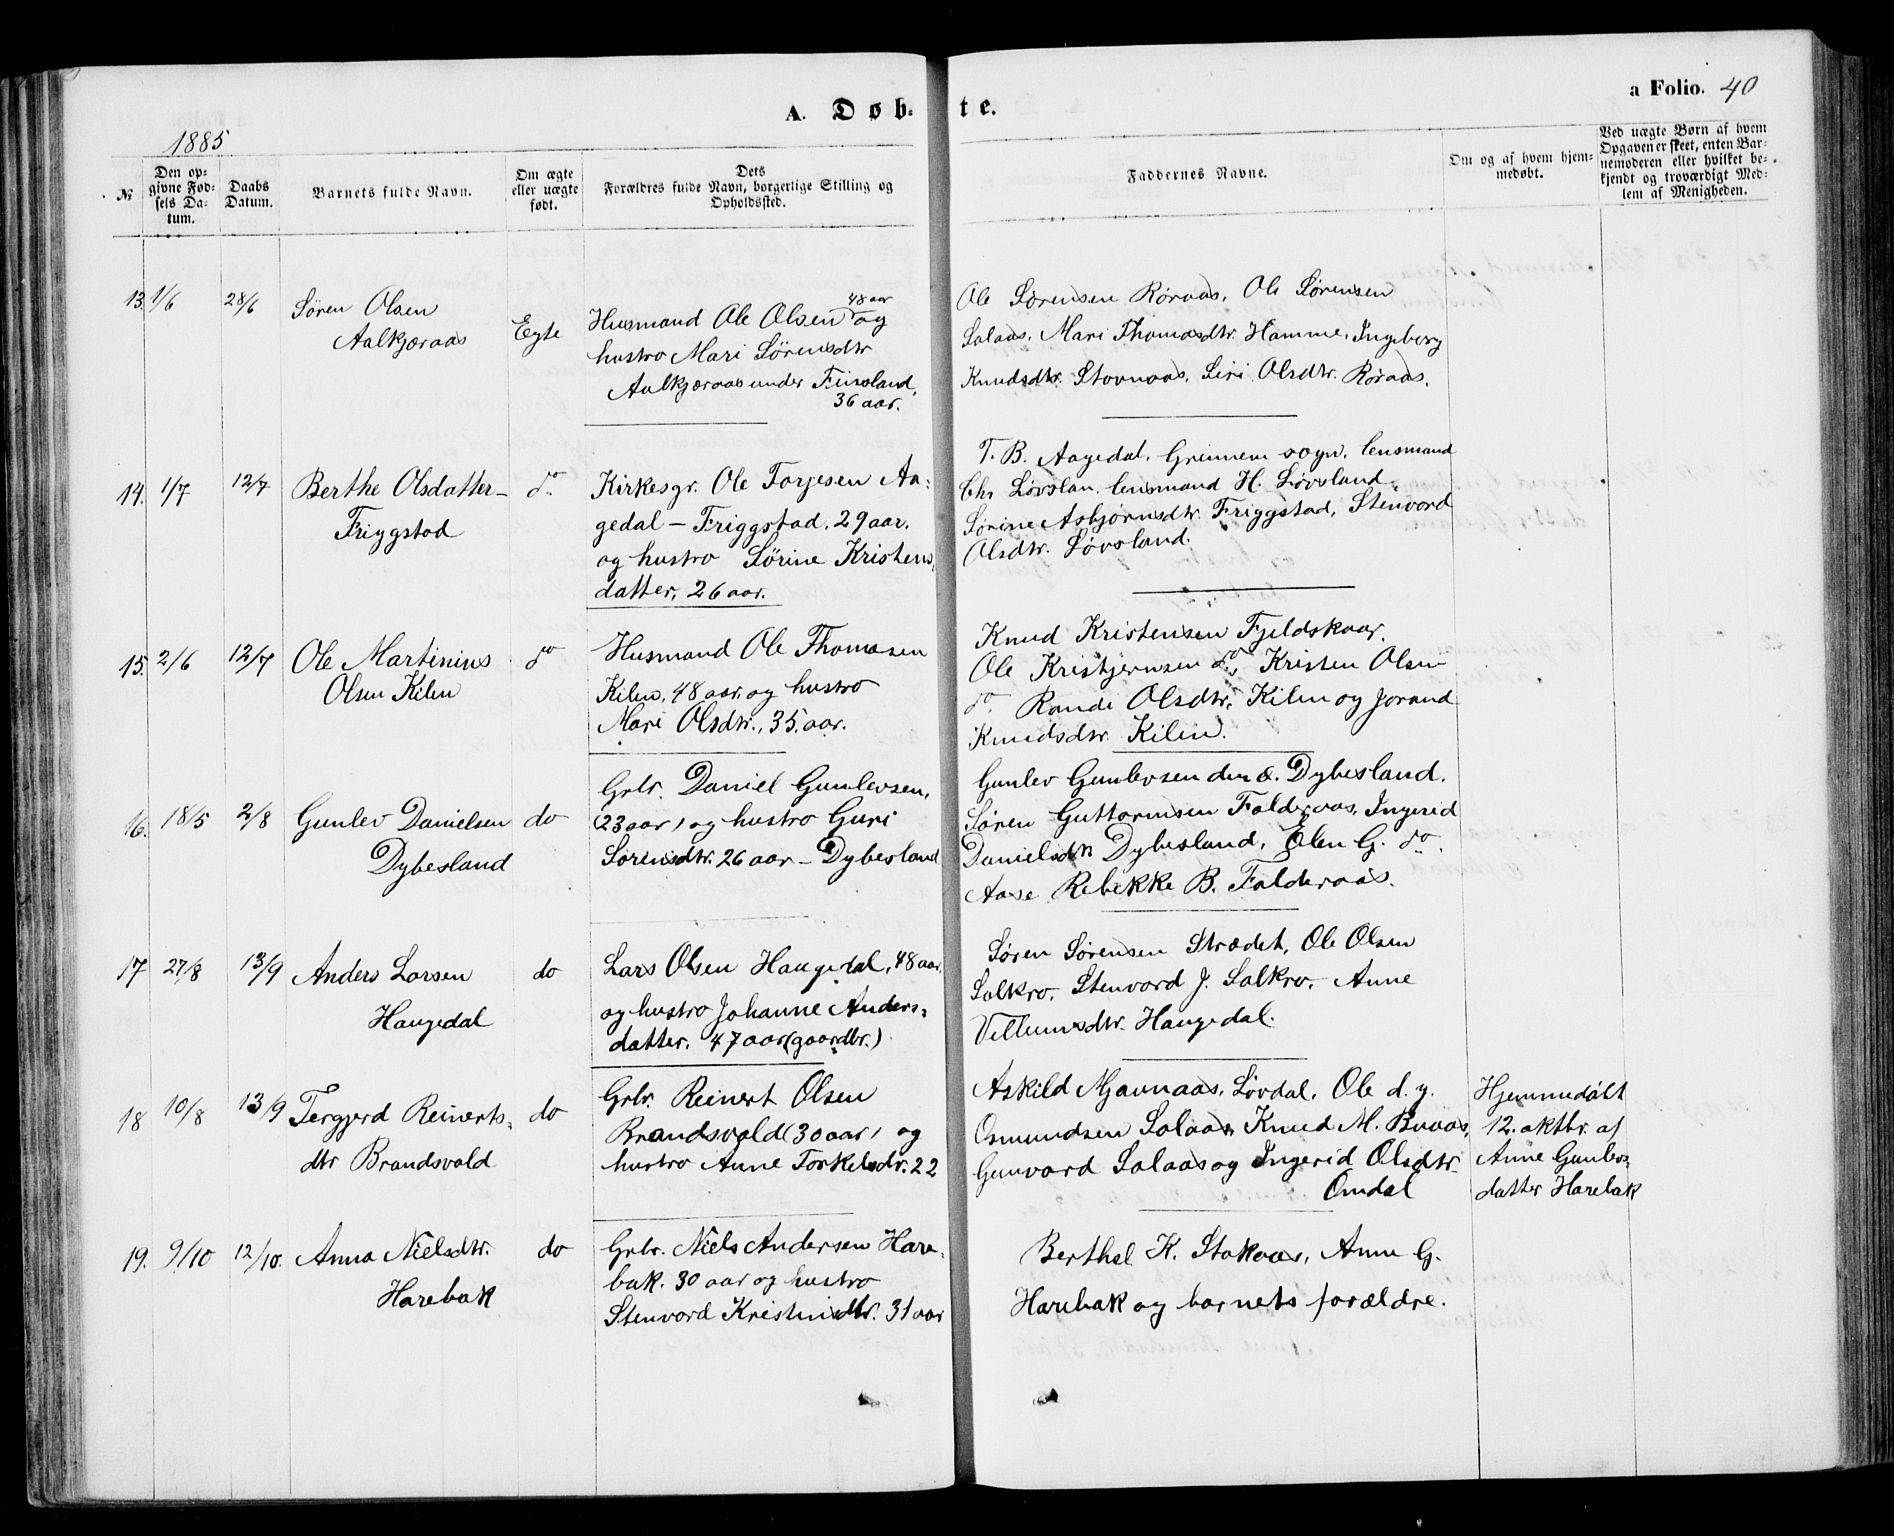 A. Døb-
te.
a Folio. 40
1885
№
Den op-
givne Fød-
sels Da-
tum.
Daabs
Datum.
Barnets fulde Navn.
Om ægte
eller uægte
født.
Dets
Forældres fulde Navn, borgerlige Stilling og
Opholdssted.
Faddernes Navne.
Om og af hvem hjem-
medøbt.
Ved uægte Børn af hvem
Opgaven er skeet, enten Bar-
nemoderen eller hvilket be-
kjendt og troværdigt Med-
lem af Menigheden.
13. 1/6 28/6
Søren Olsen
Aalkjæraas
Egte
48 aar
Husmand Ole Olsen og
hustro Mari Sørensdtr
Aalkjæraas under Finsland,
36 aar.
Ole Sørensen Røraas, Ole Sørensen
Salaas, Mari Thomasdtr. Hamme, Ingeborg
Knudsdtr. Stovnaas, Siri Olsdtr. Røraas.
14. 1/7 12/7
Berthe Olsdatter-
Friggstad
do
Kirkesgr. Ole Torjesen Aa-
gedal - Friggstad, 29 aar,
og hustro Sørine Kristens,
datter, 26 aar.
T. B. Aagedal, Grinnem sogn, lensmand
Chr Løvslan, lensmand H. Løvsland
Sørine Asbjørnsdtr. Friggstad, Stenvord
Olsdtr. Løvsland.
15. 2/6 12/7
Ole Martinius
Olsen Kilen
do
Husmand Ole Thomasen
Kilen, 48 aar, og hustro
Mari Olsdtr., 35, aar.
Knud Kristensen Fjeldskaar,
Ole Kristjernsen do, Kristen Olsen
do. Rande Olsdtr, Kilen og Jorand
Knudsdtr. Kilen.
16. 18/5 2/8
Gunlev Danielsen
Dybesland
do
Grbr. Daniel Gunlevsen,
(23 aar) og hustro Guri
Sørensdtr. 26 aar - Dybesland
Gunlev Gunlevsen den æ. Dybesland.
Søren Guttormsen Falderaas, Ingerid
Danielsdtr Dybesland, Elen G. do.
Aase Rebekke B. Falderaas.
17 27/8 13/9
Anders Larsen
Haugedal
do
Lars Olsen Haugedal, 48 aar,
og hustro Johanne Anders-
datter, 47 aar (gaardbr.)
Søren Sørensen Strædet, Ole Olsen
Salkro, Stenvord J. Salkro, Anne
Villumsdtr. Haugedal.
18 10/8 13/9
Tergjerd Reinerts-
dtr Brandsvold
do
Grbr. Reinert Olsen
Brandsvold (30 aar) og
hustro Anne Torkelsdtr. 22
Askild Mjavnaas, Løvdal, Ole d. y.
Osmundsen Salaas, Knud M. Buaas,
Gunvord Salaas og Ingerid Olsdtr
Omdal
Hjemmedøbt
12. oktbr. af
Anne Gunlevs-
datter Harebak
19. 9/10 12/10.
Anna Nielsdtr.
Harebak
do
Grbr. Niels Andersen Hare-
bak. 30 aar og hustro
Stenvord Kristensdtr. 31 aar
Berthel K. Stakaas, Anne G.
Harebak og barnets forældre.